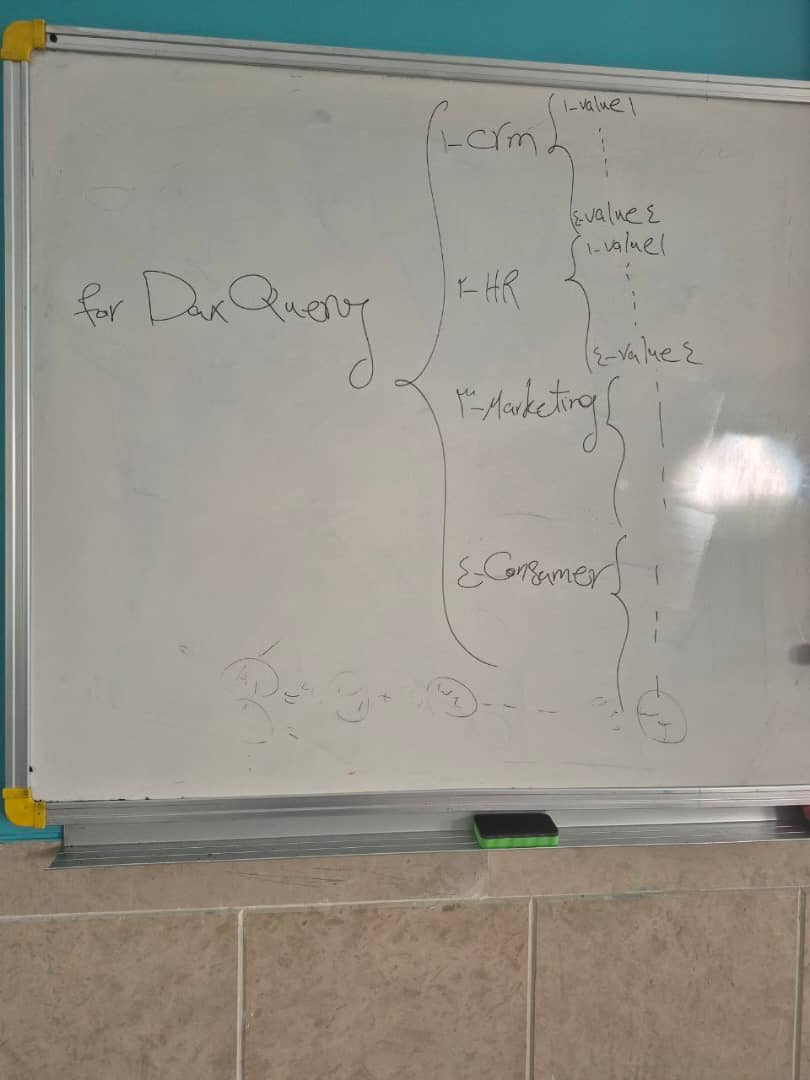 for Dax Query
۱-crm
۱-value۱
٤-value٤
۲-HR
۱-value۱
٤-value٤
۳-Marketing
٤-Consumer